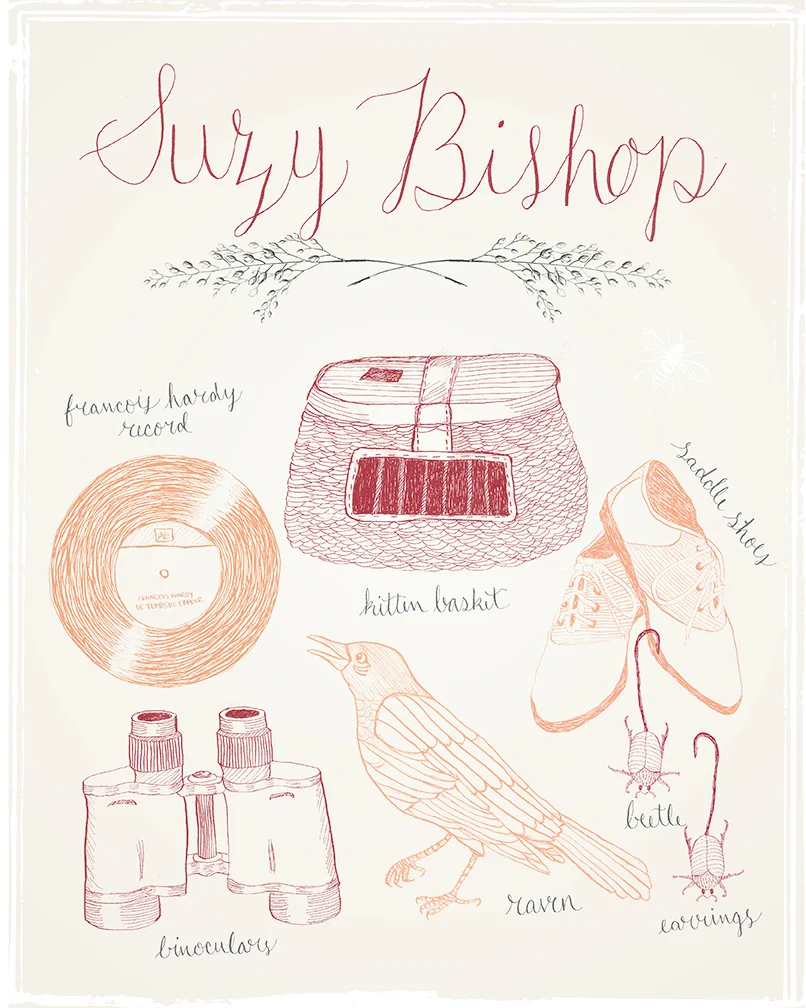 Suzy Bishop
francois hardy
record
FRANCOIS HARDY
LE TEMPS DE L'AMOUR
kitten basket
saddle shoes
binoculars
raven
beetle
earrings